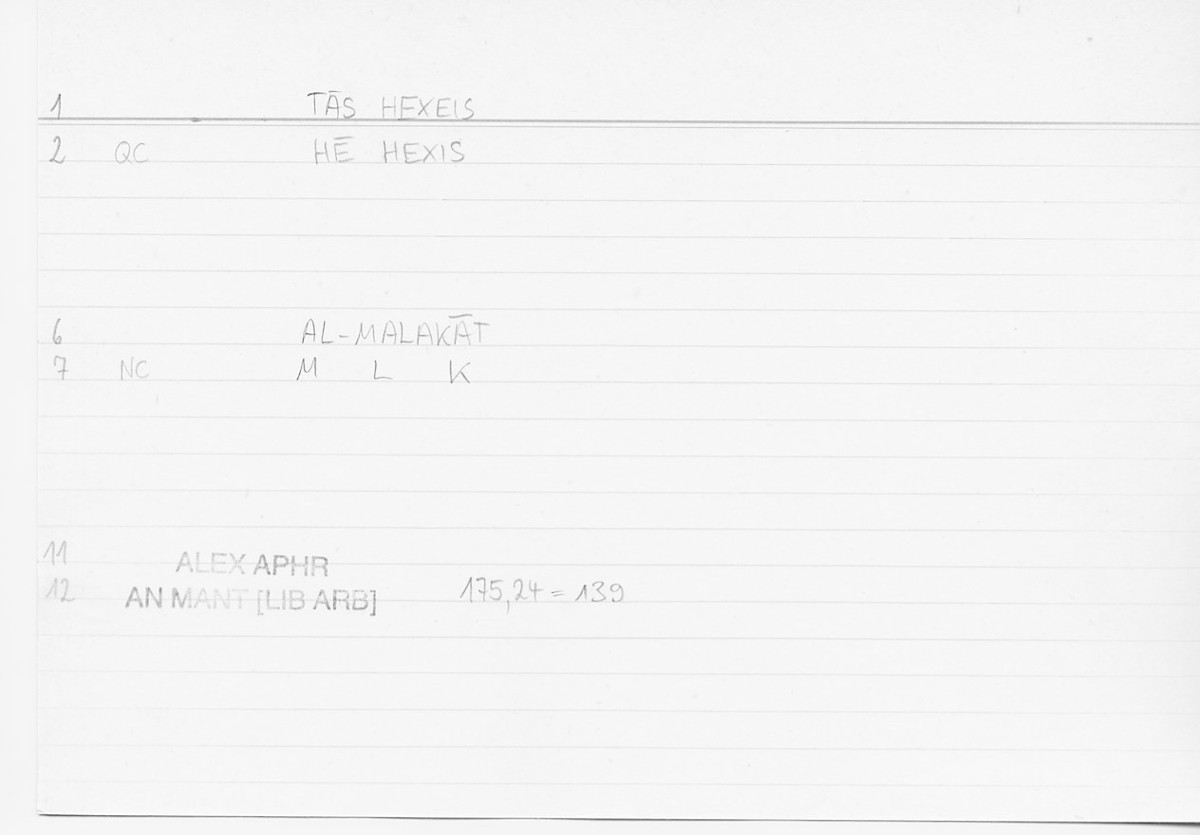 1 TĀS HEXEIS
2 QC HĒ HEXIS
6 AL-MALAKĀT
7 NC M L K
11 ALEX APHR
12 AN MANT [LIB ARB] 175,24 = 139